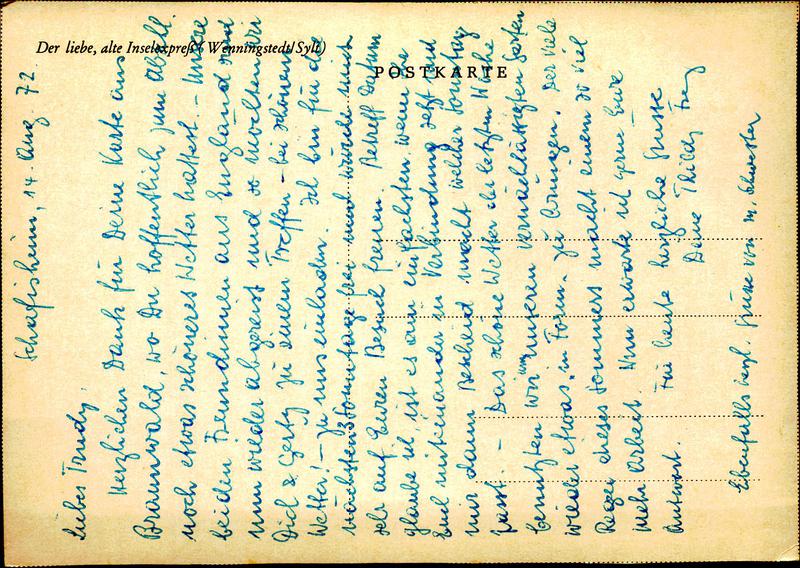 Der liebe, alte Inselexpreß (Wenningstedt/Sylt)
POSTKARTE
Schafisheim, 14. Aug. 72.
Liebes Trudy,
Herzlichen Dank für Deine Karte aus
Braunwald, wo Du hoffentlich zum Abell.
noch etwas schöneres Wetter hattest. – Unsere
beiden Freundinnen aus England sind
nun wieder abgereist und so möchten wir
Dich & Gerty zu einem Treffen – bei schönem
Wetter! – zu uns einladen. Ich bin für die
nächsten 3 Sonntage frei und würde mich
sehr auf Euren Besuch freuen. Betreff Datum
glaube ich ist es am einfachsten, wenn Ihr
Euch miteinander in Verbindung setzt und
mir dann Bescheid macht welcher Sonntag
passt. – Das schöne Wetter der letzten Woche
benutzten wir, um unseren vernachlässigten Garten
wieder etwas in Form zu bringen. Der viele
Regen dieses Sommers macht einem so viel
mehr Arbeit. Nun erwarte ich gerne Eure
Antwort. Für heute herzliche Grüsse
Deine Thildy Frey
Ebenfalls herzl. Grüsse von m. Schwester